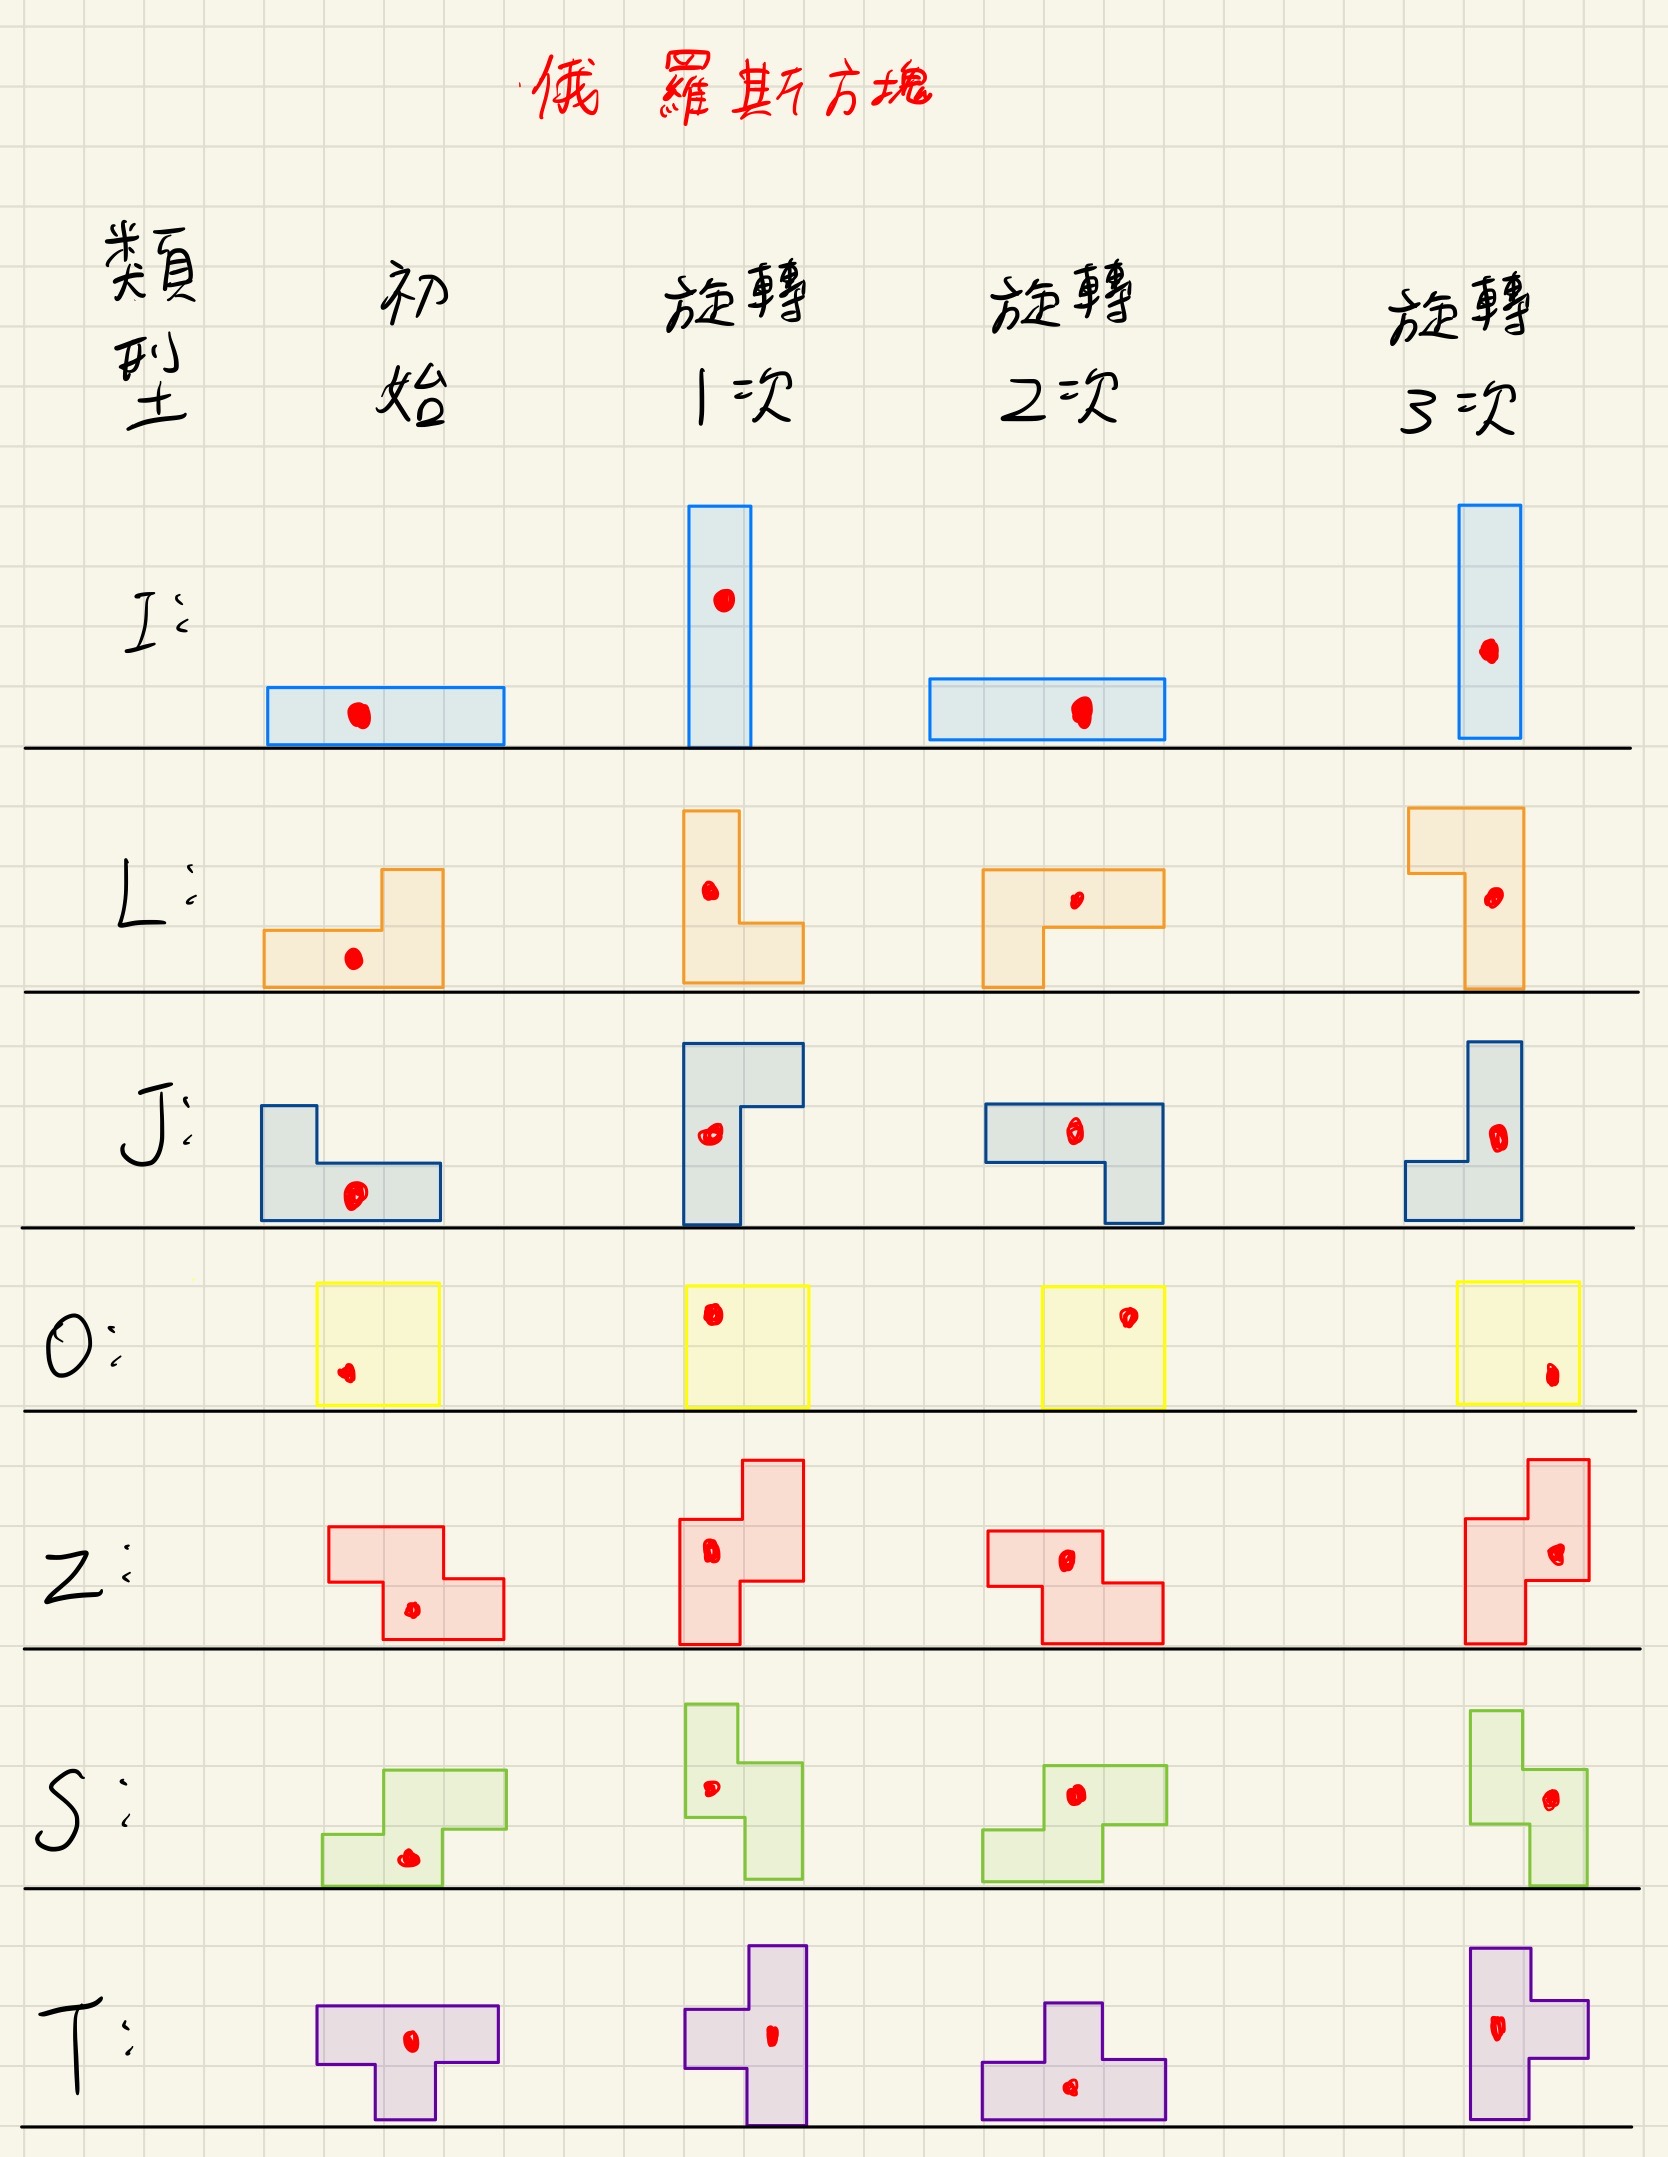 俄羅斯方塊
類型 初始 旋轉1次 旋轉2次 旋轉3次
I:
L:
J:
O:
Z:
S:
T: